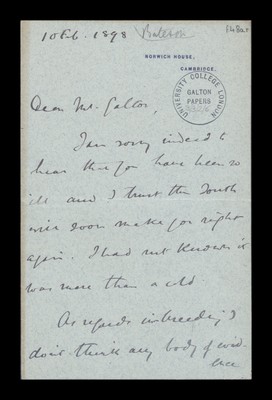 10 Feb. 1898 Bateson
NORWICH HOUSE,
CAMBRIDGE.
UNIVERSITY COLLEGE LONDON
GALTON
PAPERS
Dear Mr Galton,
I am sorry indeed to
hear that you have been so
ill and I trust the South
will soon make you right
again. I had not known it
was more than a cold.
As regards inbreeding I
don't think any body of evid-
ence